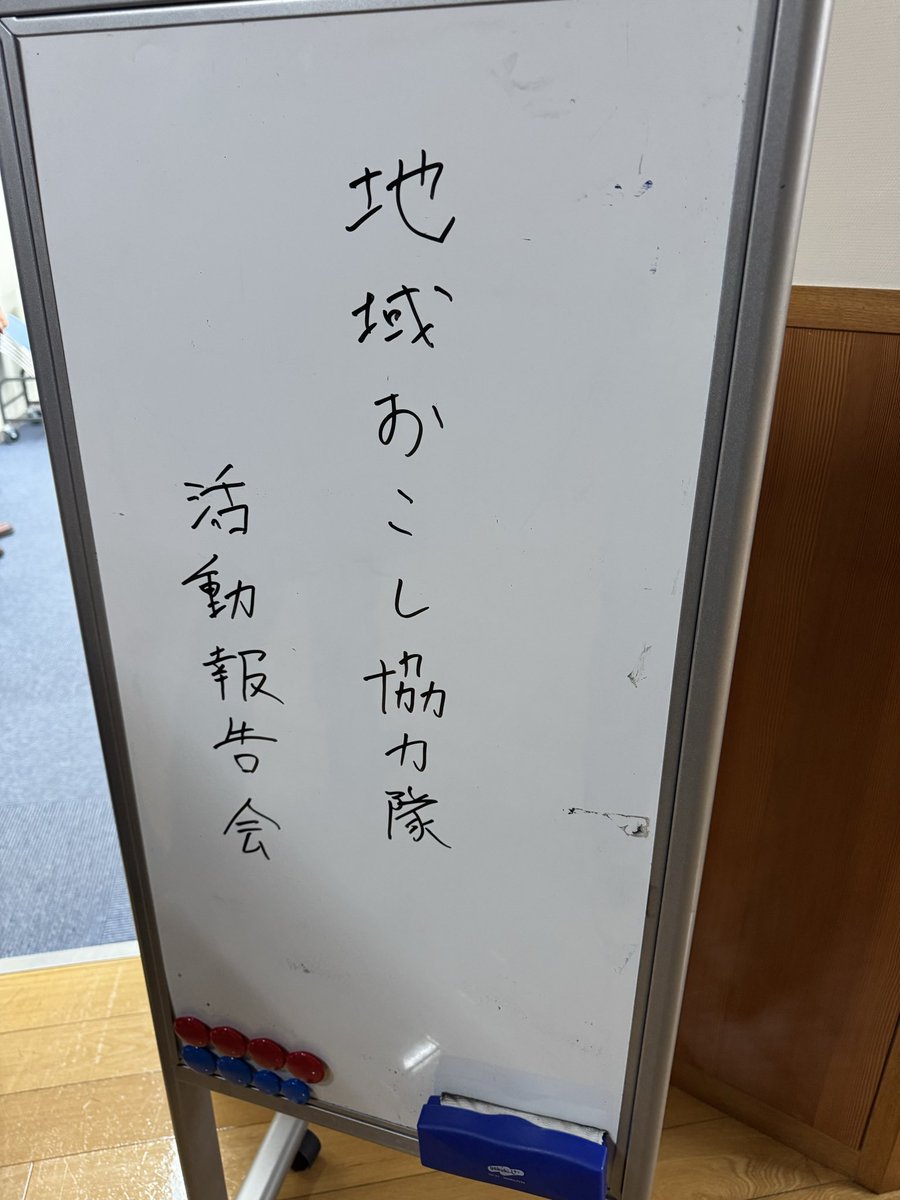 地域おこし協力隊
活動報告会